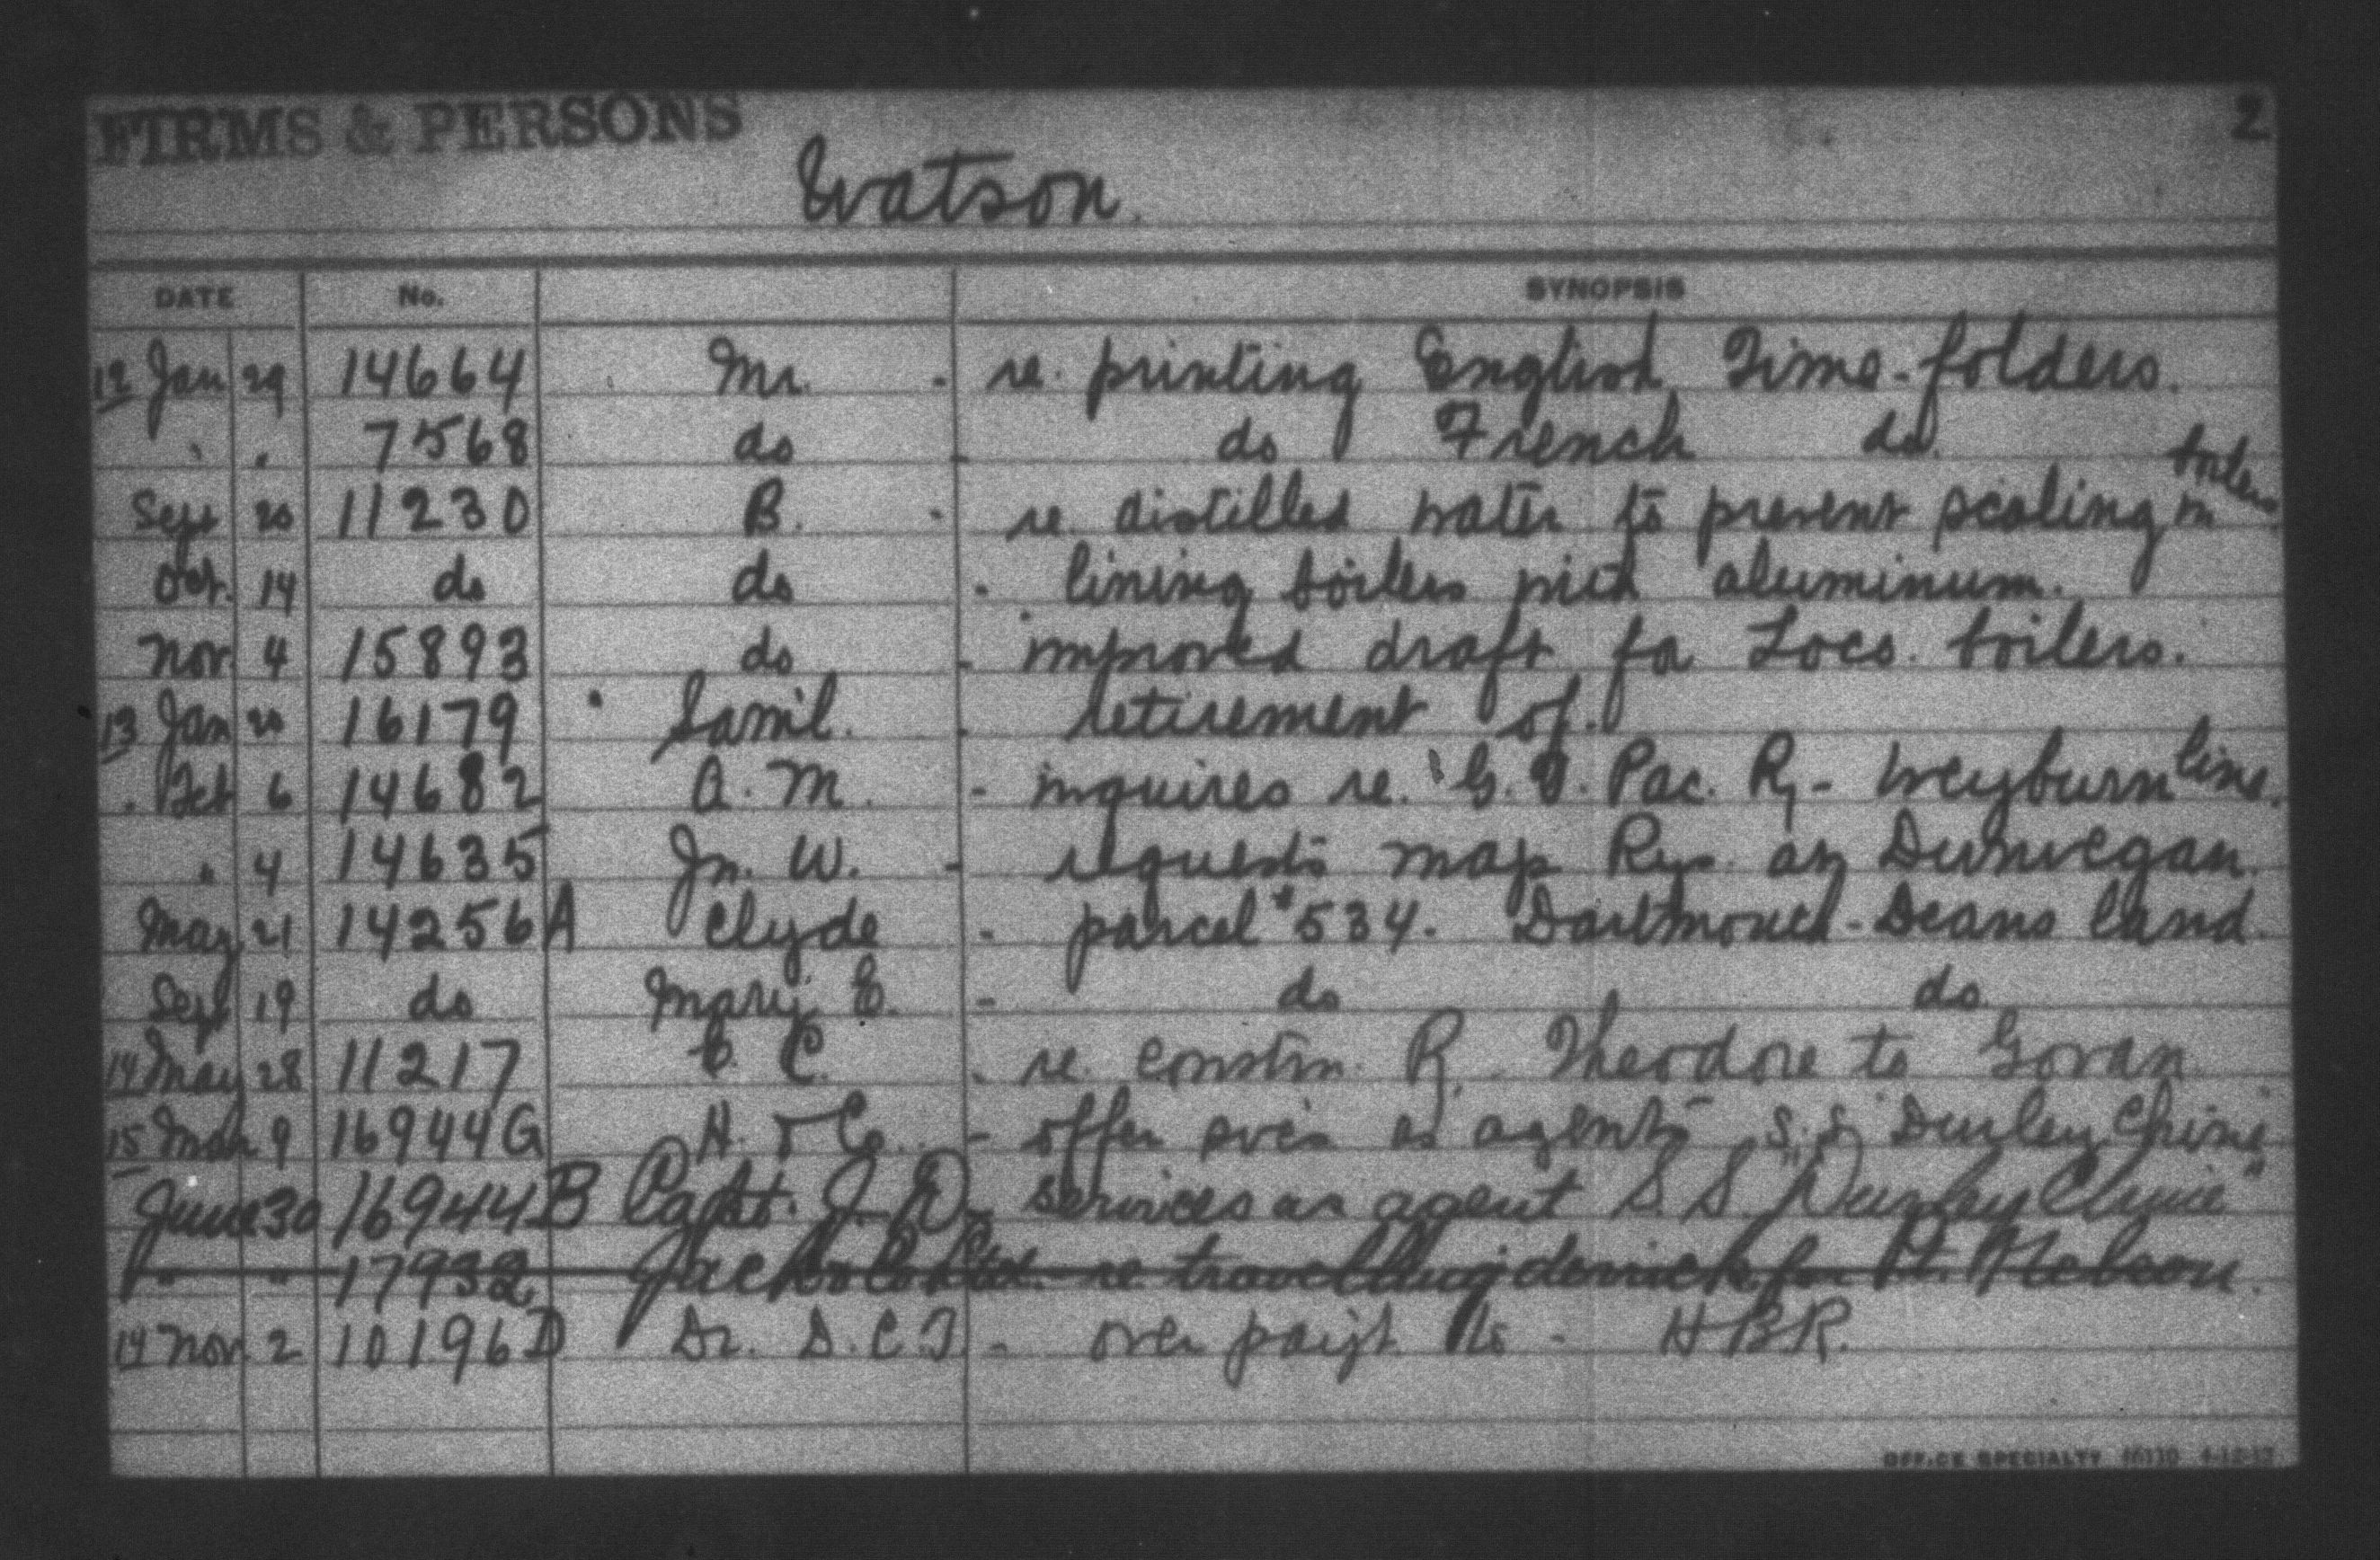 FIRMS & PERSONS 2
Watson.
DATE No. SYNOPSIS
12 Jan 29 14664 Mr. - re. printing English Time-folders.
" " 7568 do - do French do.
Sept 20 11230 B. - re distilled water to prevent scaling in boilers.
Oct. 14 do do - lining boilers with aluminum.
Nov. 4 15893 do - improved draft for Locs. boilers.
13 Jan 20 16179 Saml. - retirement of.
" Feb 6 14682 A. M. - inquires re. G. T. Pac. Ry - Weyburn line.
" 4 14635 Jn. W. - requests map Rys. at Dunvegan.
May 21 14256A Clyde - parcel #534. Dartmouth-Deans land.
Sept 19 do Mary E. - do do
14 May 28 11217 C. - re. constrn. R. Theodore to Govan
15 Mar 9 16944G H. & Co. - offer svcs as agents S.S. "Durley Chine"
June 30 16944B Capt. J. D. - services as agent S.S. "Durley Chine"
" " 17932 Jacks & Co. Ltd. - re. travelling derrick for Pt. Nelson.
14 Nov. 2 10196D Dr. D. C. T. - over paryt. to - HBR.
OFFICE SPECIALTY